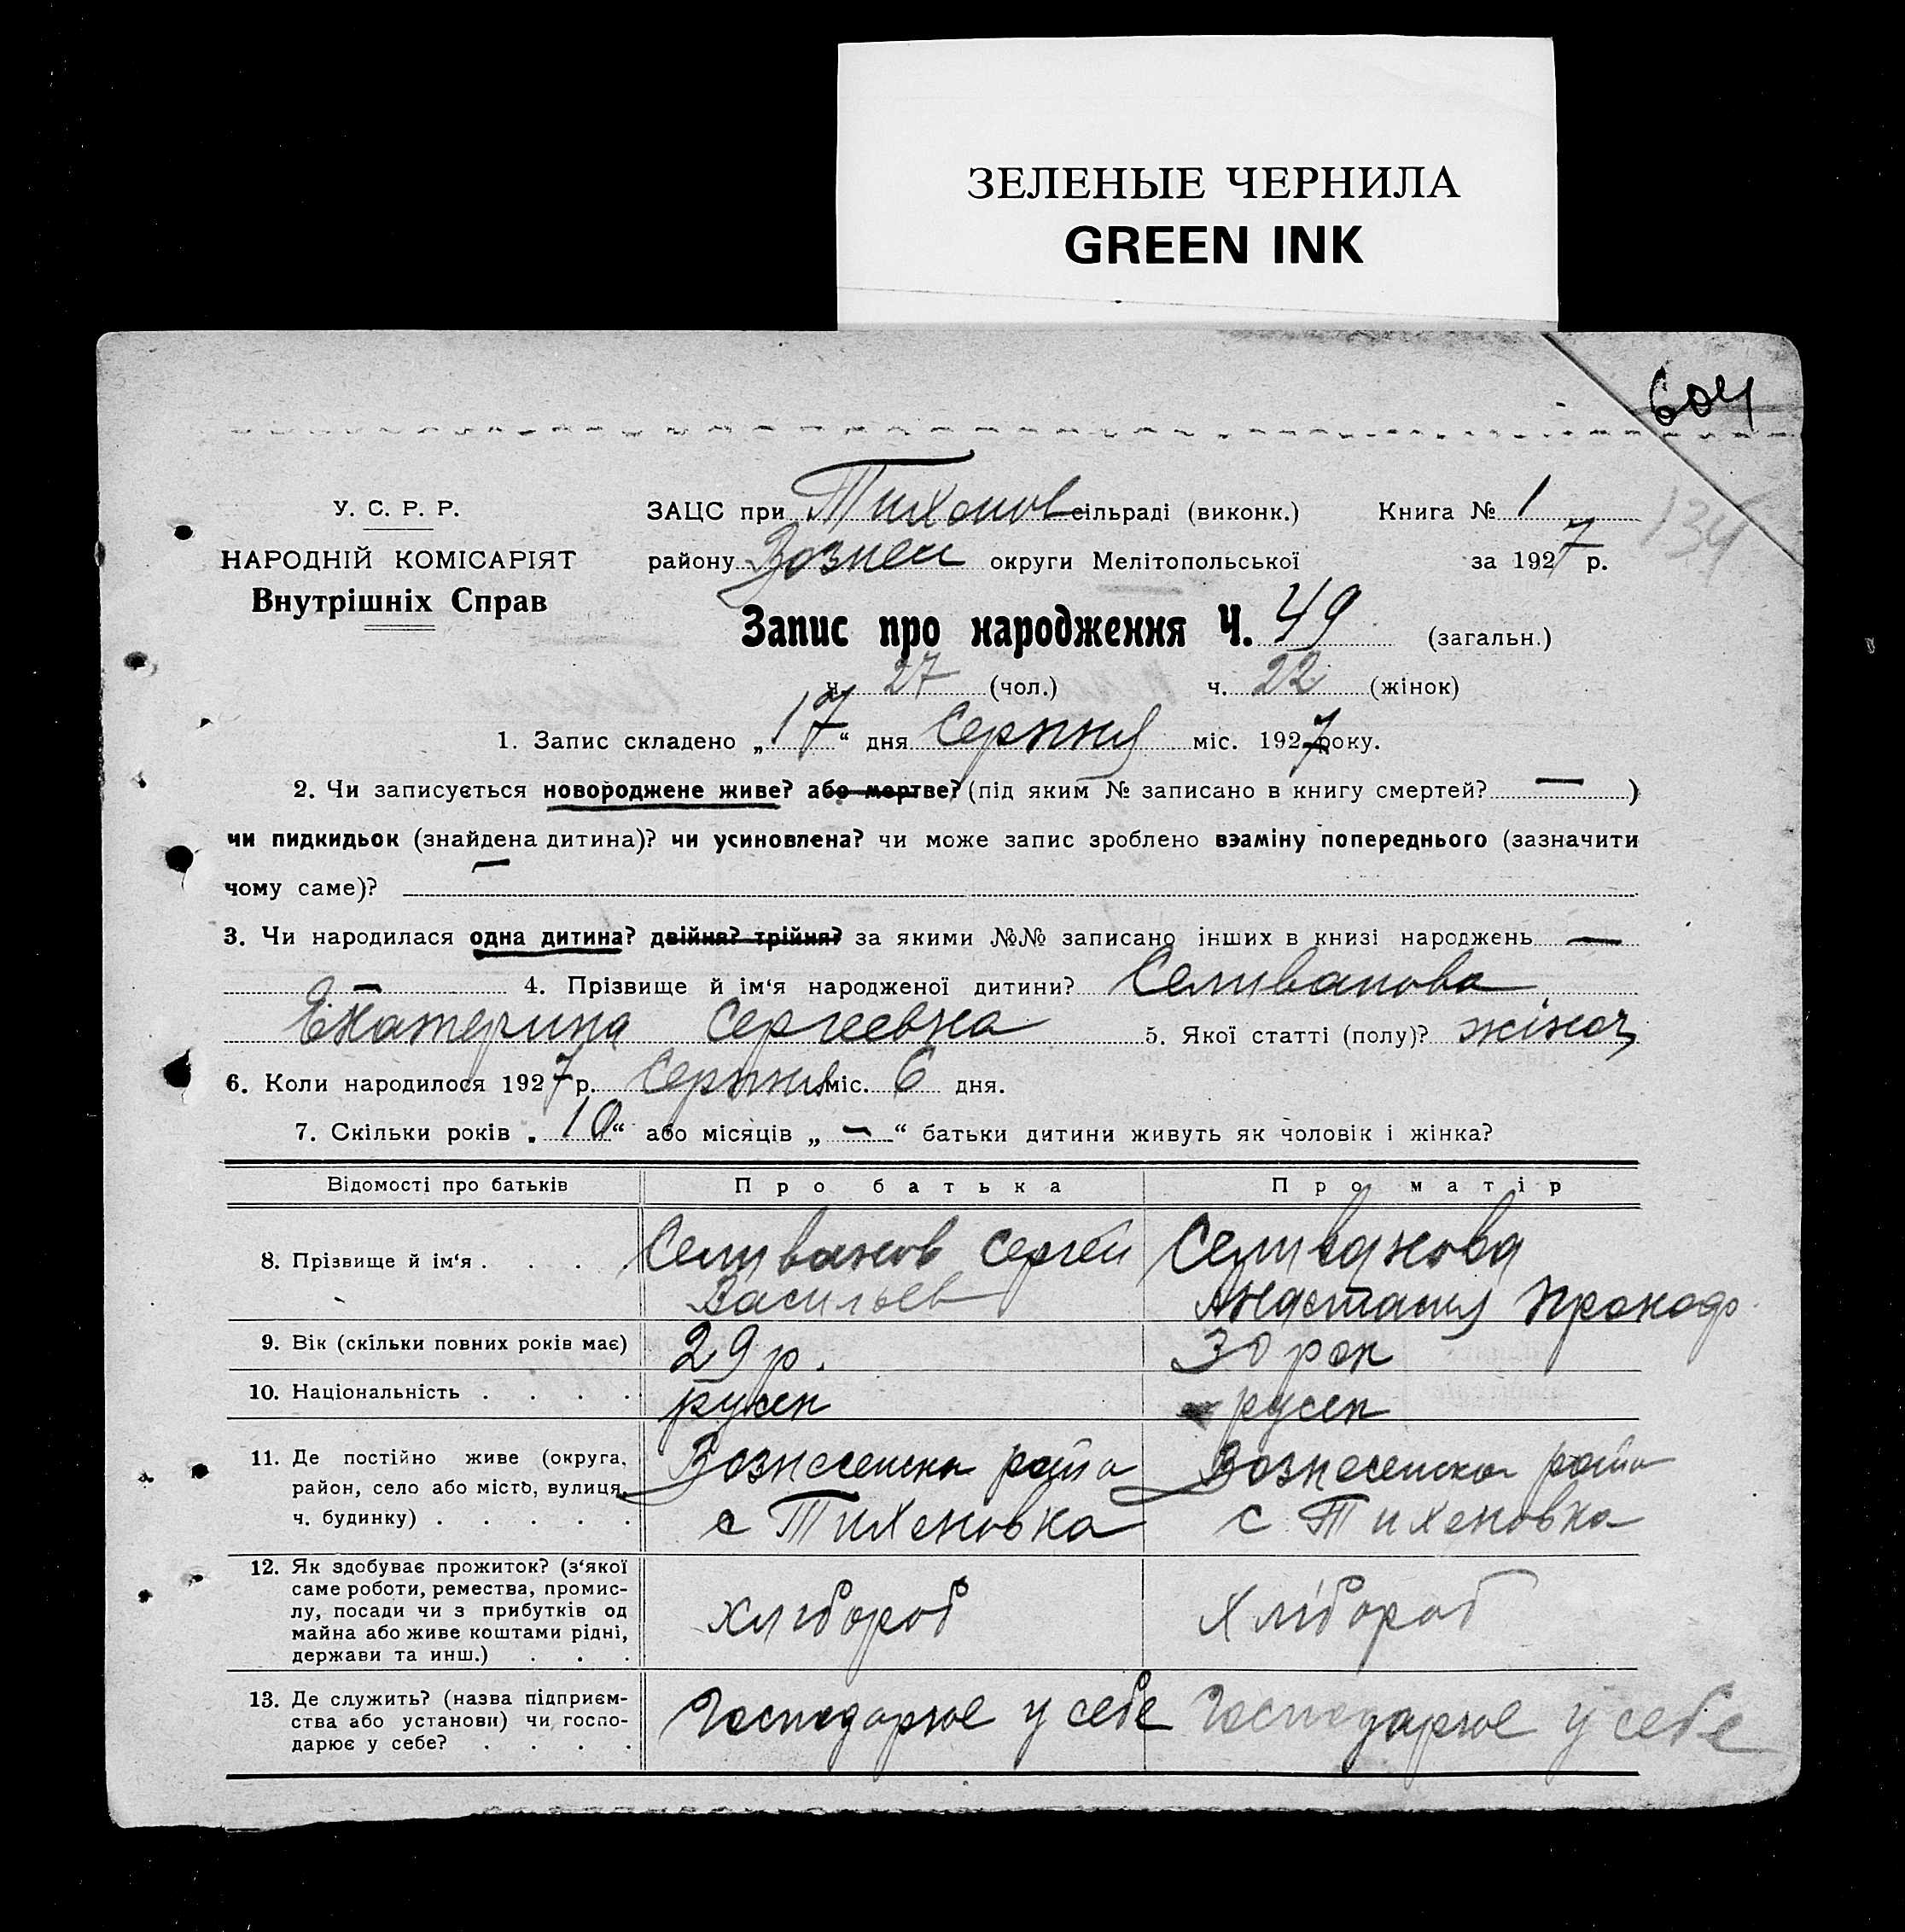 ЗЕЛЕНЫЕ ЧЕРНИЛА
GREEN INK
604
134
У. С. Р. Р.
НАРОДНІЙ КОМІСАРІЯТ
Внутрішніх Справ
ЗАЦС при Тихонов сільраді (виконк.) Книга № 1
району Вознес округи Мелітопольської за 1927 р.
Запис про народження Ч. 49 (загальн.)
ч. 27 (чол.) ч. 22 (жінок)
1. Запис складено „17“ дня Серпня міс. 1927 року.
2. Чи записується новороджене живе? або мертве? (під яким № записано в книгу смертей? — )
чи пидкидьок (знайдена дитина)? чи усиновлена? чи може запис зроблено взаміну попереднього (зазначити
чому саме)? —
3. Чи народилася одна дитина? двійня? трійня? за якими №№ записано інших в книзі народжень —
— 4. Прізвище й ім‘я народженої дитини? Селиванова
Екатерина Сергеевна 5. Якої статті (полу)? жіноч
6. Коли народилося 1927 р. Серпня міс. 6 дня.
7. Скільки років „10“ або місяців „—“ батьки дитини живуть як чоловік і жінка?
Відомості про батьків Про батька Про матір
8. Прізвище й ім‘я . . . . Селиванов Сергей Селиванова
Васильев Анастасия Прокоф
9. Вік (скільки повних років має) 29 р. 30 рок
10. Національність . . . . русск русск
11. Де постійно живе (округа, Вознесенска района Вознесенска района
район, село або мість, вулиця,
ч. будинку) . . . . . с Тихоновка с Тихоновка
12. Як здобуває прожиток? (з‘якої
саме роботи, ремества, промис-
лу, посади чи з прибутків од хлібороб Хлібороб
майна або живе коштами рідні,
держави та инш.) . . .
13. Де служить? (назва підприєм- Господарює у себе Господарює у себе
ства або установи) чи госпо-
дарює у себе? . . . .